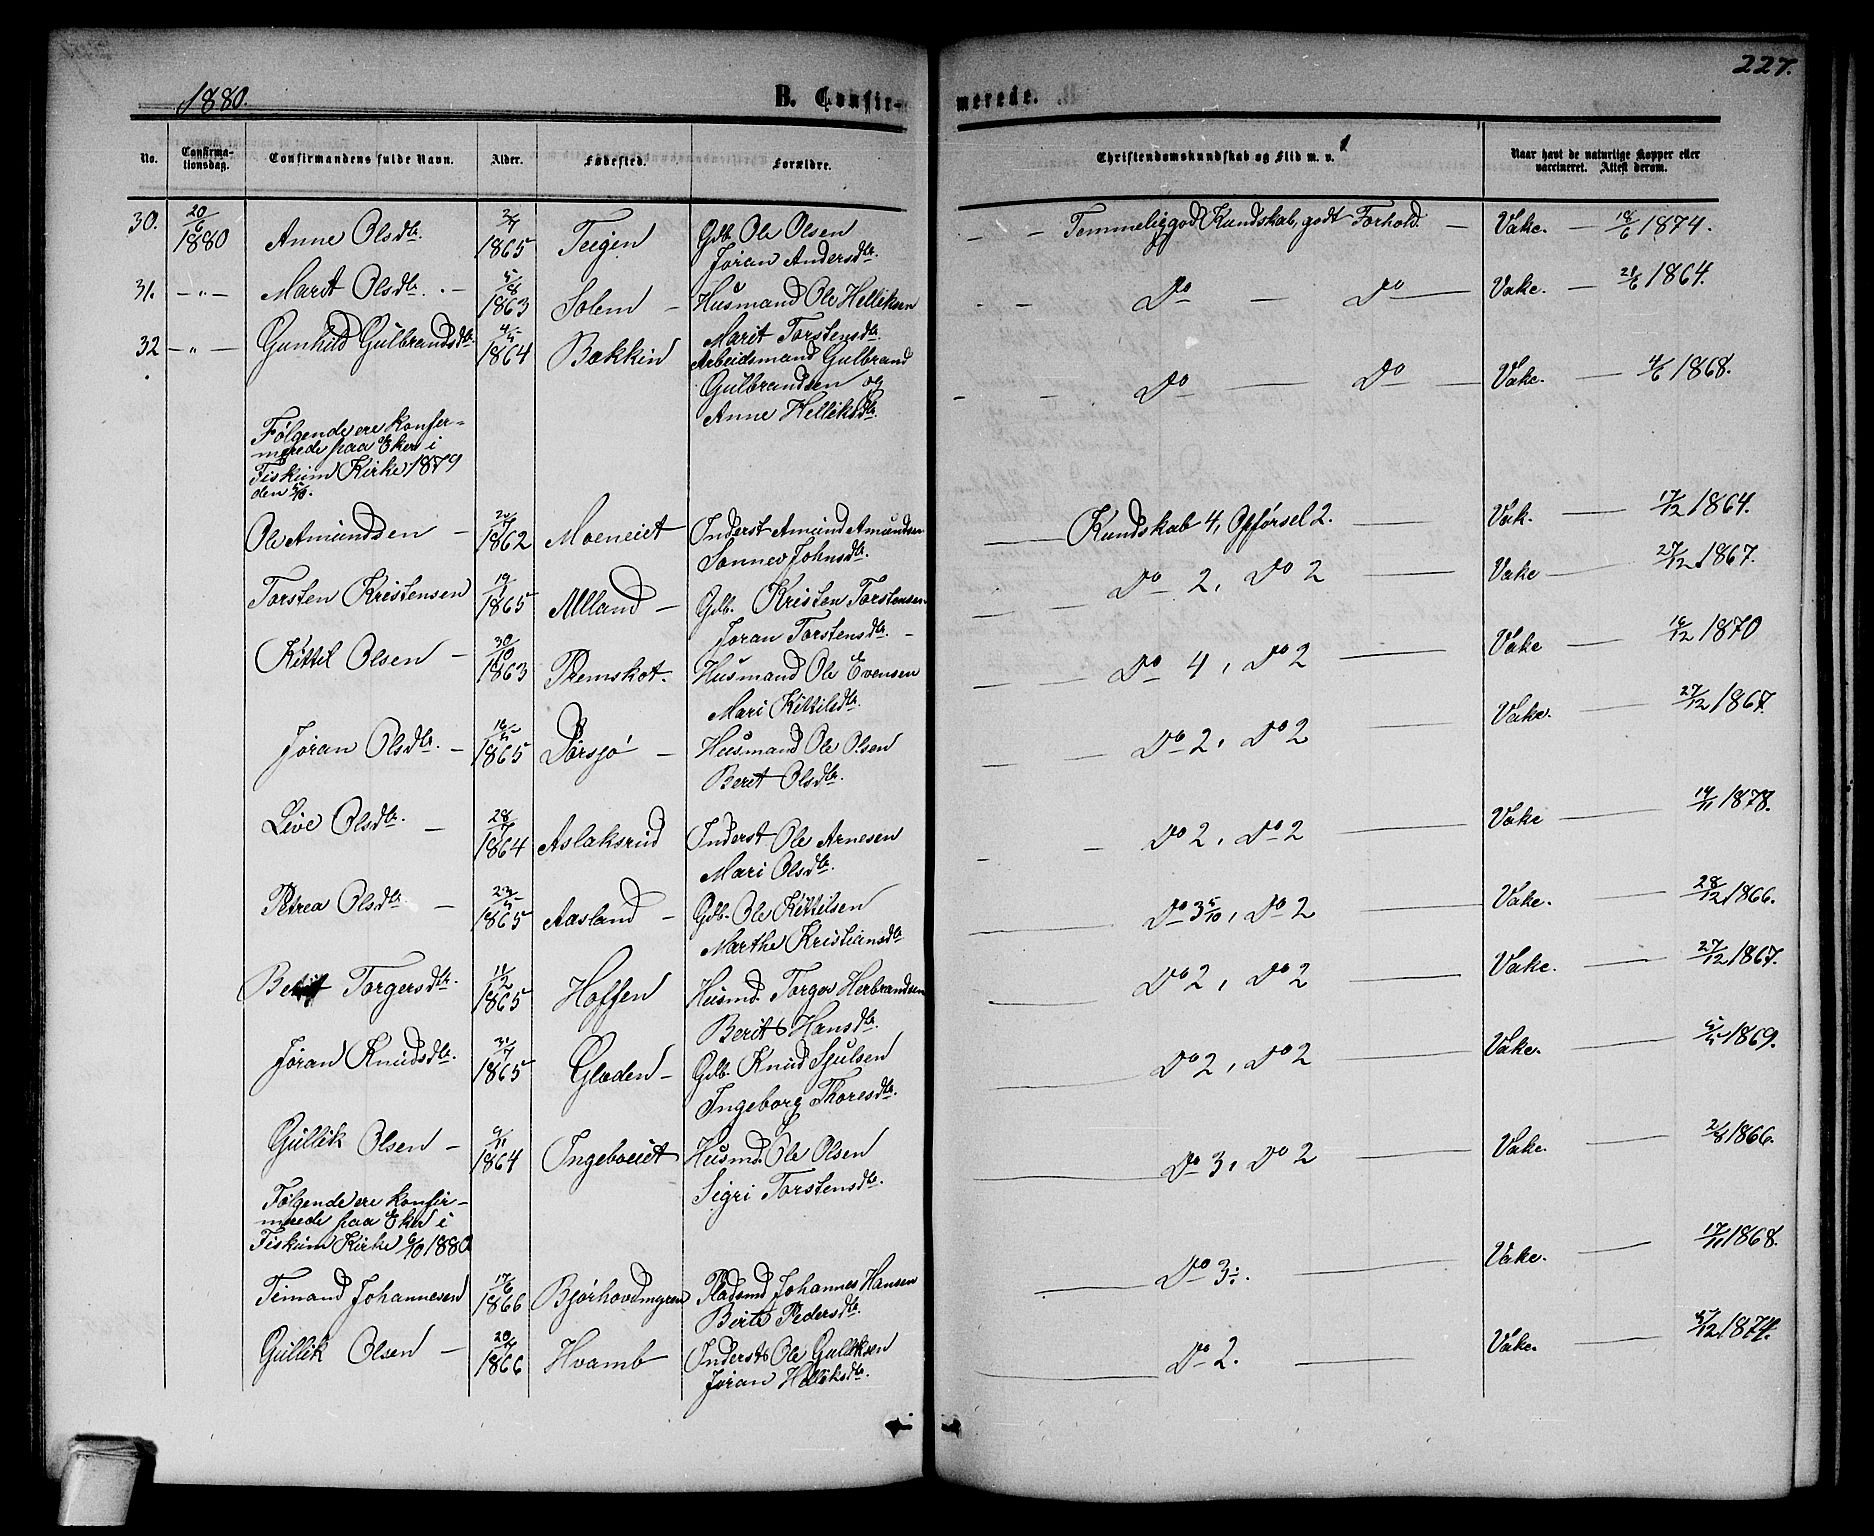 1880.
B. Confir-
merede.
227.
No.
Confirma-
tionsdag.
Confirmandens fulde Navn.
Alder.
Fødested.
Forældre.
Christendomskundskab og Flid m. v.
Naar havt de naturlige Kopper eller
vaccineret. Attest derom.
30. 20/6 1880 Anne Olsdtr. 2/7 1865 Teigen Gdb. Ole Olsen
Jøran Andersdtr.
Temmelig god Kundskab, godt Forhold. Vake. 18/6 1874.
31. — " — Marit Olsdtr. 5/8 1863 Solem — Husmand Ole Helliksen
Marit Torstensdtr.
Do — Do Vake. 21/6 1864.
32 — " — Gunhild Gulbrandsdtr. 1864 Bækkin Arbeidsmand Gulbrand
Gulbrandsen og
Anne Helliksdtr.
Do — Do Vake. 4/6 1868.
Følgende ere konfir-
merede paa Eker i
Fiskum Kirke 1879
den 5/10.
Ole Amundsen — 1862 Moeneiet Inderst Amund Amundsen
Sønnev Johnsdtr.
Kundskab 4, Opførsel 2. Vak. 17/12 1864.
Torsten Kristensen 1865 Ålland — Gdb. Kristen Torstensen
Jøran Torstensdtr.
Do 2, Do 2 Vake 27/12 1867.
Kittil Olsen — 30/10 1863 Præmskot. Husmand Ole Evensen
Mari Kittilsdtr.
Do 4, Do 2 Vake 16/12 1870
Jøran Olsdtr. — 16/5 1865 Dørsjø — Husmand Ole Olsen
Berit Olsdtr.
Do 2, Do 2 Vake. 27/12 1867.
Live Olsdtr. — 28/7 1864 Aslaksrud Inderst Ole Arnesen
Mari Olsdtr.
Do 2, Do 2 Vake 14/11 1878.
Petrea Olsdtr. — 1865 Aasland — Gdb. Ole Kittilsen
Marthe Kristiansdtr.
Do 3 5/10, Do 2 Vake. 28/12 1866.
Berit Torgersdtr. 11/2 1865 Hoffen Husmd. Torger Herbrandsen
Berit Hansdtr.
Do 2, Do 2 Vake. 27/12 1867.
Jøran Knudsdtr. 31/7 1865 Glæden — Gdb. Knud Sjulsen
Ingeborg Thoresdtr.
Do 2, Do 2 Vake. 1869.
Gullik Olsen — 9/11 1864 Ingeboeiet Husmd. Ole Olsen
Sigri Torstensdtr.
Do 3, Do 2 Vake. 2/8 1866.
Følgende ere konfir-
merede paa Eker i
Fiskum Kirke 6/10 1880
Timand Johannesen 17/6 1866 Bjørhovdmyren Pladsmd Johannes Hansen
Berte Pedersdtr.
Do 3. Vake. 17/11 1868.
Gullik Olsen — 1866 Hvamb Inderst Ole Gulliksen
Jøran Helliksdtr.
Do 2. Vake. 1874.